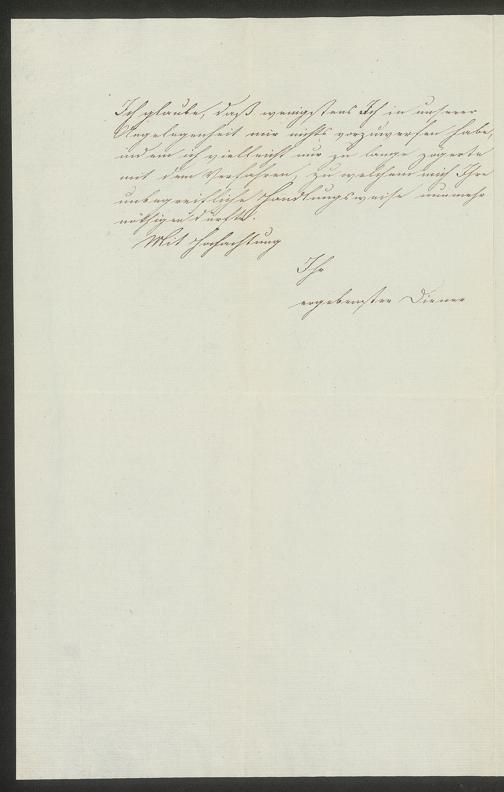 Ich glaube, daß wenigstens Ich in unserer
Angelegenheit mir nichts vorzuwerfen habe,
indem ich vielleicht nur zu lange zögerte
mit dem Verfahren, zu welchem mich Ihre
unbegreifliche Handlungsweise nunmehr
nöthigen dürfte.
Mit Hochachtung
Ihr
ergebenster Diener